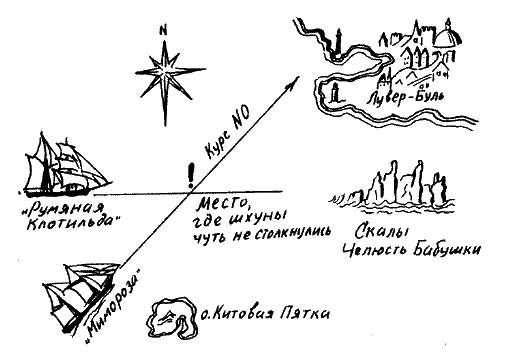 N
Лувер-Буль
Курс NO
!
„Румяная
Клотильда“
Место,
где шхуны
чуть не столкнулись
Скалы
Челюсть Бабушки
„Мимороза“
о. Китовая Пятка